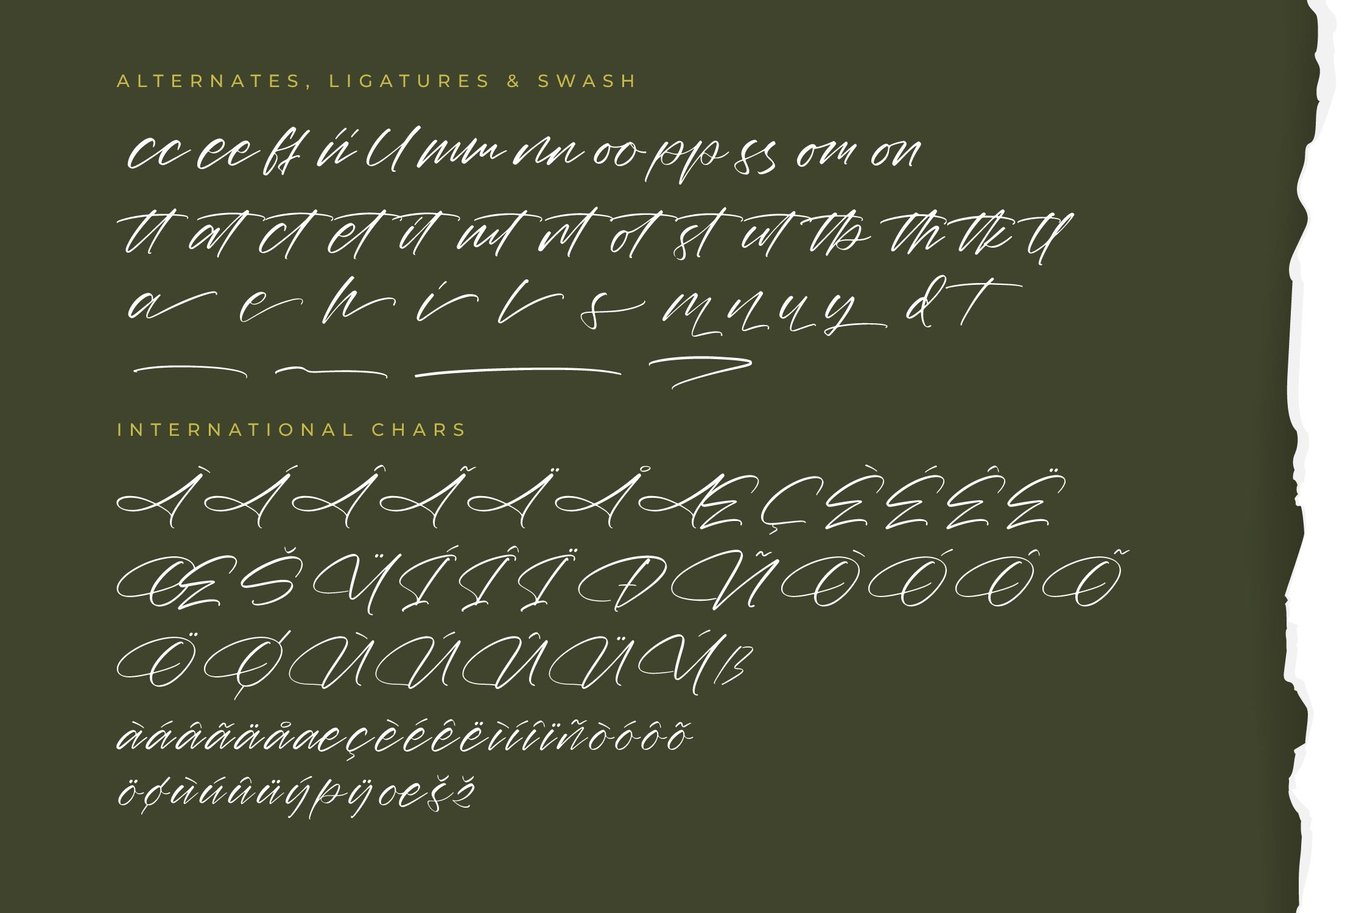 ALTERNATES, LIGATURES & SWASH
cc ee ff ii ll mm nn oo pp ss om on
tt at ct et it mt nt ot st ut tb th tk tl
a e h i l s m n u y d T
INTERNATIONAL CHARS
ÀÁÂÃÄÅÆÇÈÉÊË
ŒŠŸÍÎÏÐÑÒÓÔÕ
ÖØÙÚÛÜÝß
àáâãäåæçèéêëìíîïñòóôõ
öøùúûüýþÿœšž